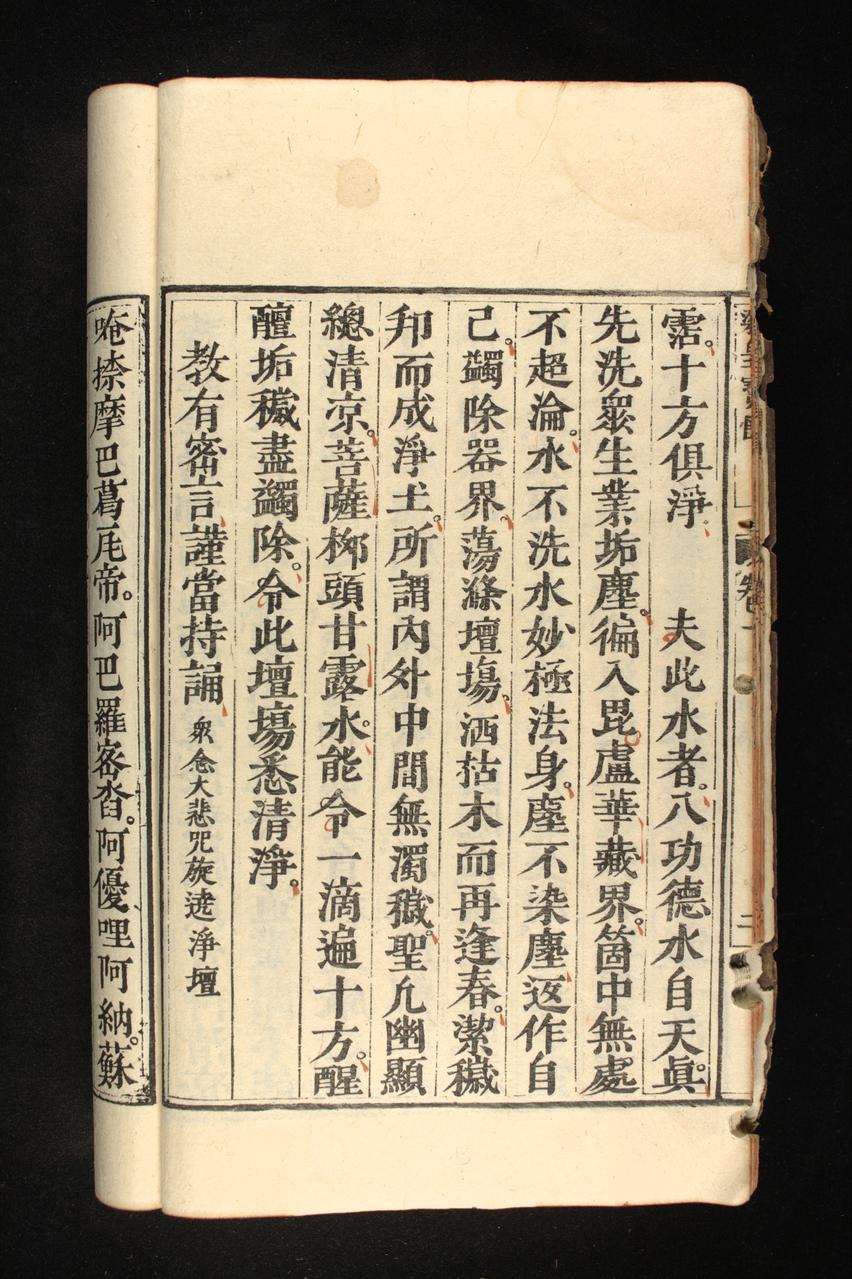 梁皇寶懺 卷一 二
霑。十方俱淨 夫此水者。八功德水自天眞。
先洗衆生業垢塵。徧入毘盧華藏界。箇中無處
不超淪。水不洗水妙極法身。塵不染塵返作自
己。蠲除器界。蕩滌壇塲。洒枯木而再逢春。潔穢
邦而成淨土。所謂內外中間無濁穢。聖凢幽顯
總清凉。菩薩桞頭甘露水。能令一滴遍十方。腥
羶垢穢盡蠲除。令此壇塲悉清淨。
教有密言謹當持誦 衆念大悲咒旋遶淨壇
唵捺摩巴葛瓦帝。阿巴羅密沓。阿優哩阿納。蘇